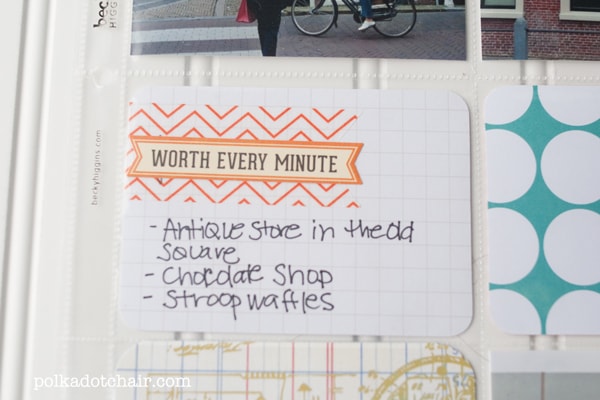 becky
HIGG
beckyhiggins.com
WORTH EVERY MINUTE
- Antique store in the old
Square
- Chocolate Shop
- Stroopwaffles
polkadotchair.com